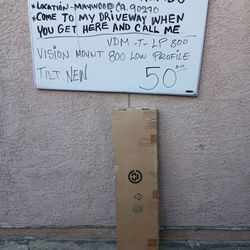 *LOCATION - MAYWOOD CA. 90270
*COME TO MY DRIVEWAY WHEN
YOU GET HERE AND CALL ME
VDM-T-LP 800
VISION MOUNT 800 LOW PROFILE
TILT NEW 50.00